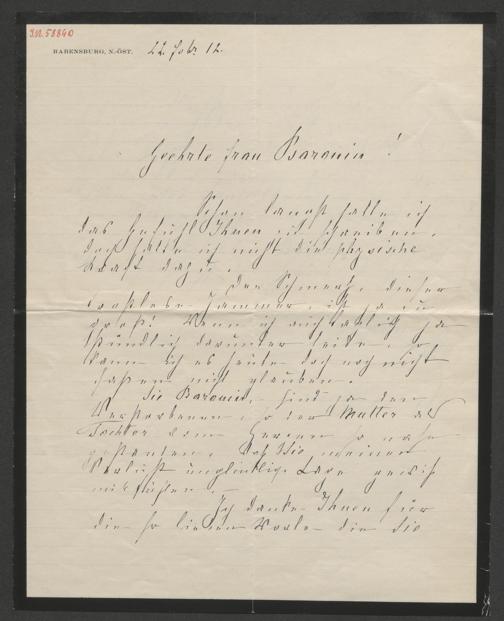 J.N. 58840
RABENSBURG, N.-ÖST. 22. Febr. 12.
Geehrte Frau Baronin!
Schon längst hatte ich
das Gefühl Ihnen zu schreiben,
doch hatte ich nicht die physische
Kraft dazu.
Der Schmerz, dieser
trostlose Jammer, ist ja zu
groß! Wenn ich auch täglich ja
stündlich darunter leide, so
kann ich es heute doch noch nicht
fassen nicht glauben.
Sie Baronin, sind ja den
Verstorbenen, so der Mutter als
Tochter vom Herzen so nahe
gestanden, daß Sie meinen
Verlust unglückliche Lage gewiß
mit fühlen.
Ich danke Ihnen für
die so lieben Worte die Sie